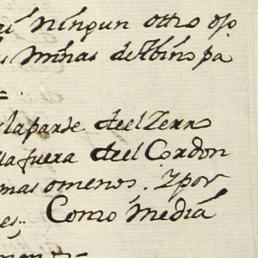 ningun ottro ojo
minas de Abino pa
la parte deel Zerro
la fuera deel Cordon
mas omenos. Y por
Como Mediá